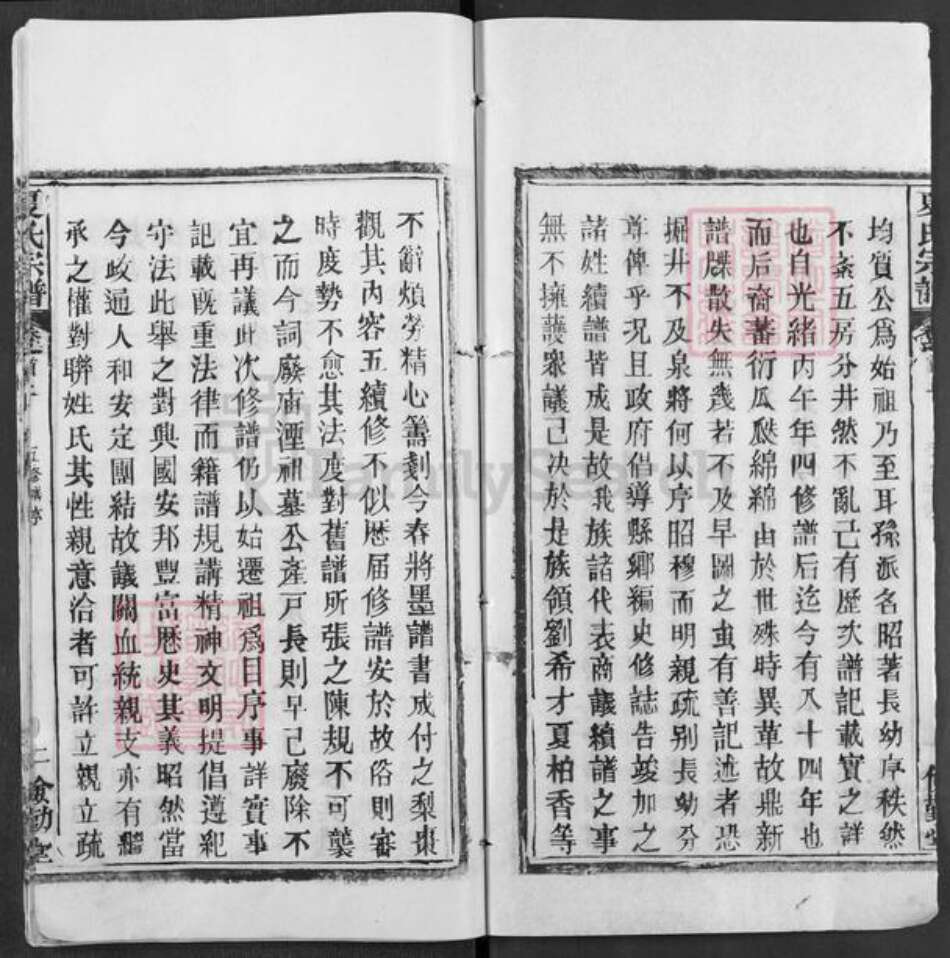 均質公爲始祖乃至耳孫派名昭著長幼序秩然
不紊五房分井然不亂己有歷次譜記載實之詳
也自光緒丙午年四修譜后迄今有八十四年也
而后裔蕃衍瓜瓞綿綿由於世殊時異革故鼎新
譜牒散失無幾若不及早圖之虽有善記述者恐
掘井不及泉將何以序昭穆而明親疏别長幼分
尊俾乎况且政府倡導縣鄉編史修誌告竣加之
諸姓續譜皆成是故我族諸代表商議續譜之事
無不擁護衆議己决於是族領劉希才夏柏香等
不辭煩勞精心籌劃今春將墨譜書成付之梨棗
觀其內容五續修不似歷届修譜安於故俗則審
時度勢不愈其法度對舊譜所張之陳規不可襲
之而今詞廢庙湮祖墓公產戸長則早己廢除不
宜再議此次修譜仍以始遷祖爲目序事詳實事
記載旣重法律而籍譜規講精神文明提倡遵紀
守法此舉之對興國安邦豐富歷史其義昭然當
今政通人和安定團結故議關血統親支亦有繼
承之權對聯姓氏其性親意洽者可許立親立疏
夏氏宗譜
FamilySearch